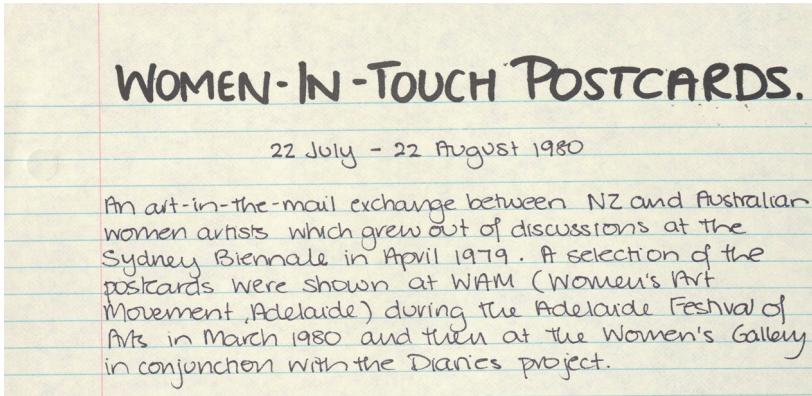 WOMEN-IN-TOUCH POSTCARDS.
22 July - 22 August 1980
An art-in-the-mail exchange between NZ and Australian
women artists which grew out of discussions at the
Sydney Biennale in April 1979. A selection of the
postcards were shown at WAM (Women's Art
Movement, Adelaide) during the Adelaide Festival of
Arts in March 1980 and then at the Women's Gallery
in conjunction with the Diaries project.